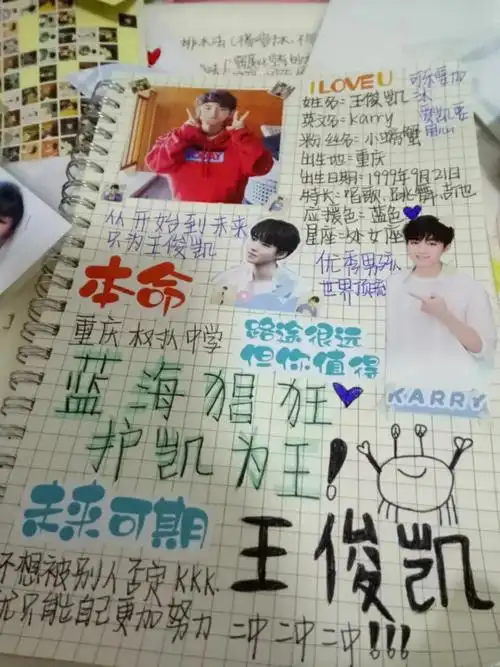 I LOVE U
姓名=王俊凯
英文名=karry
粉丝名=小螃蟹
出生地=重庆
出生日期=1999年9月21日
特长=唱歌、跳舞、吉他
应援色=蓝色
星座=处女座
可乐要加
冰
爱凯要
用心
KARRY
从开始到未来
只为王俊凯
优秀男孩
世界顶流
本命
重庆 权扒中学
路途很远
但你值得
KARRY
蓝海猖狂
护凯为王!
未来可期
王俊凯
不想被别人否定KKK.
就只能自己更加努力
二中二中二中!!!